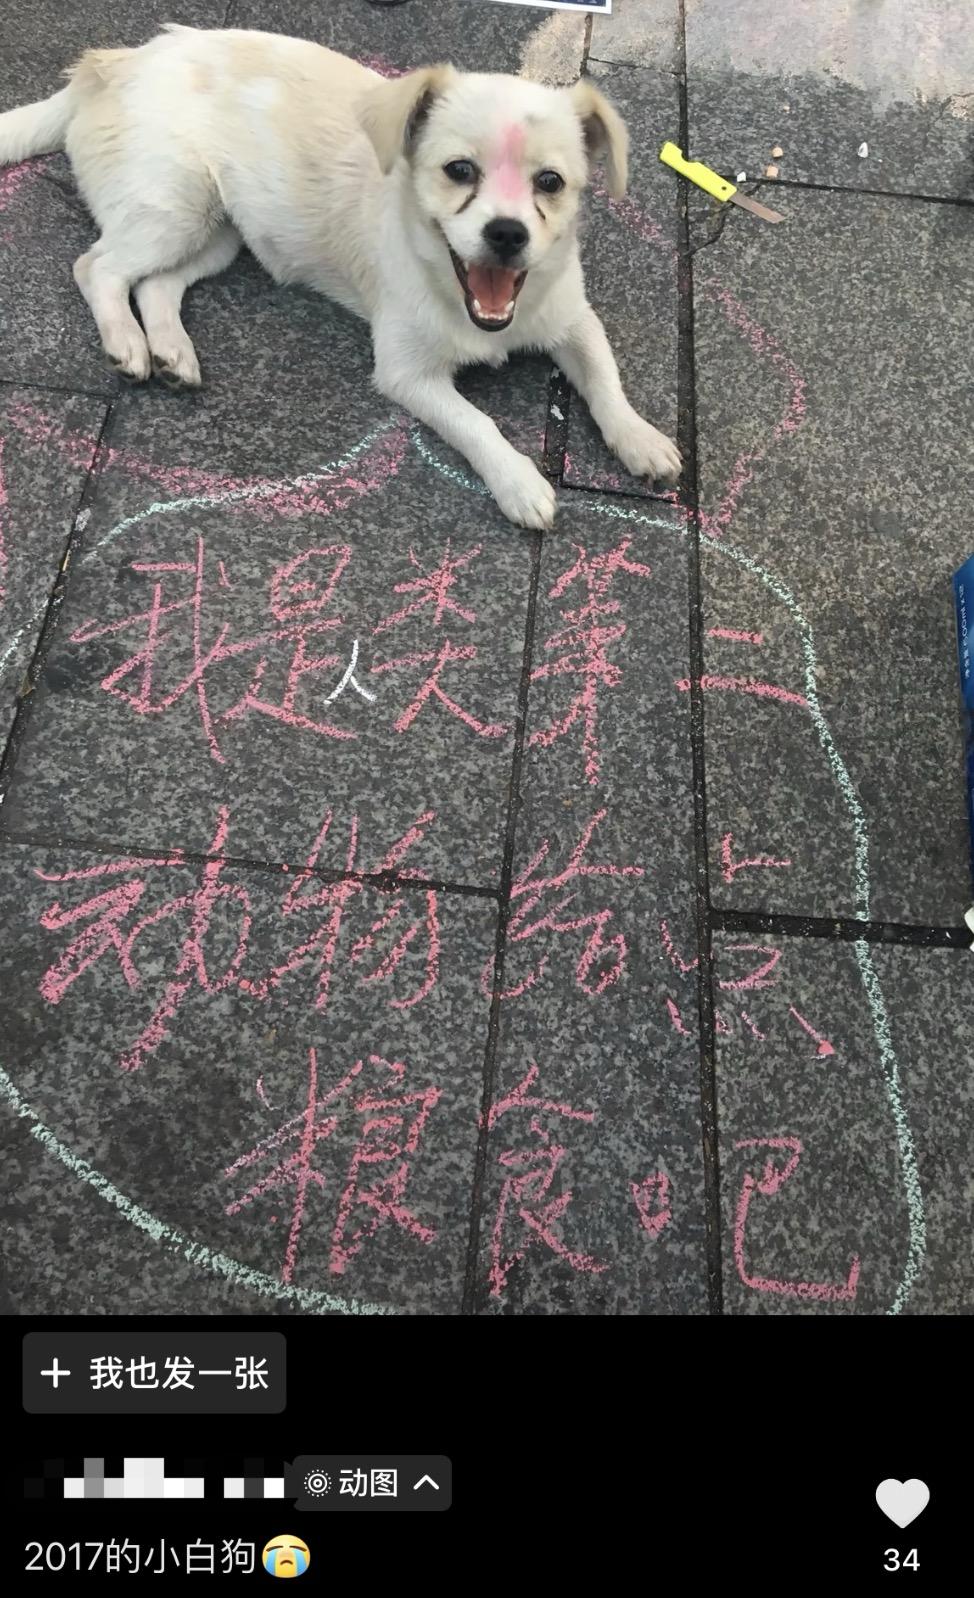 我是人类第二
动物给点
粮食吧
我也发一张
动图
2017的小白狗😭
34